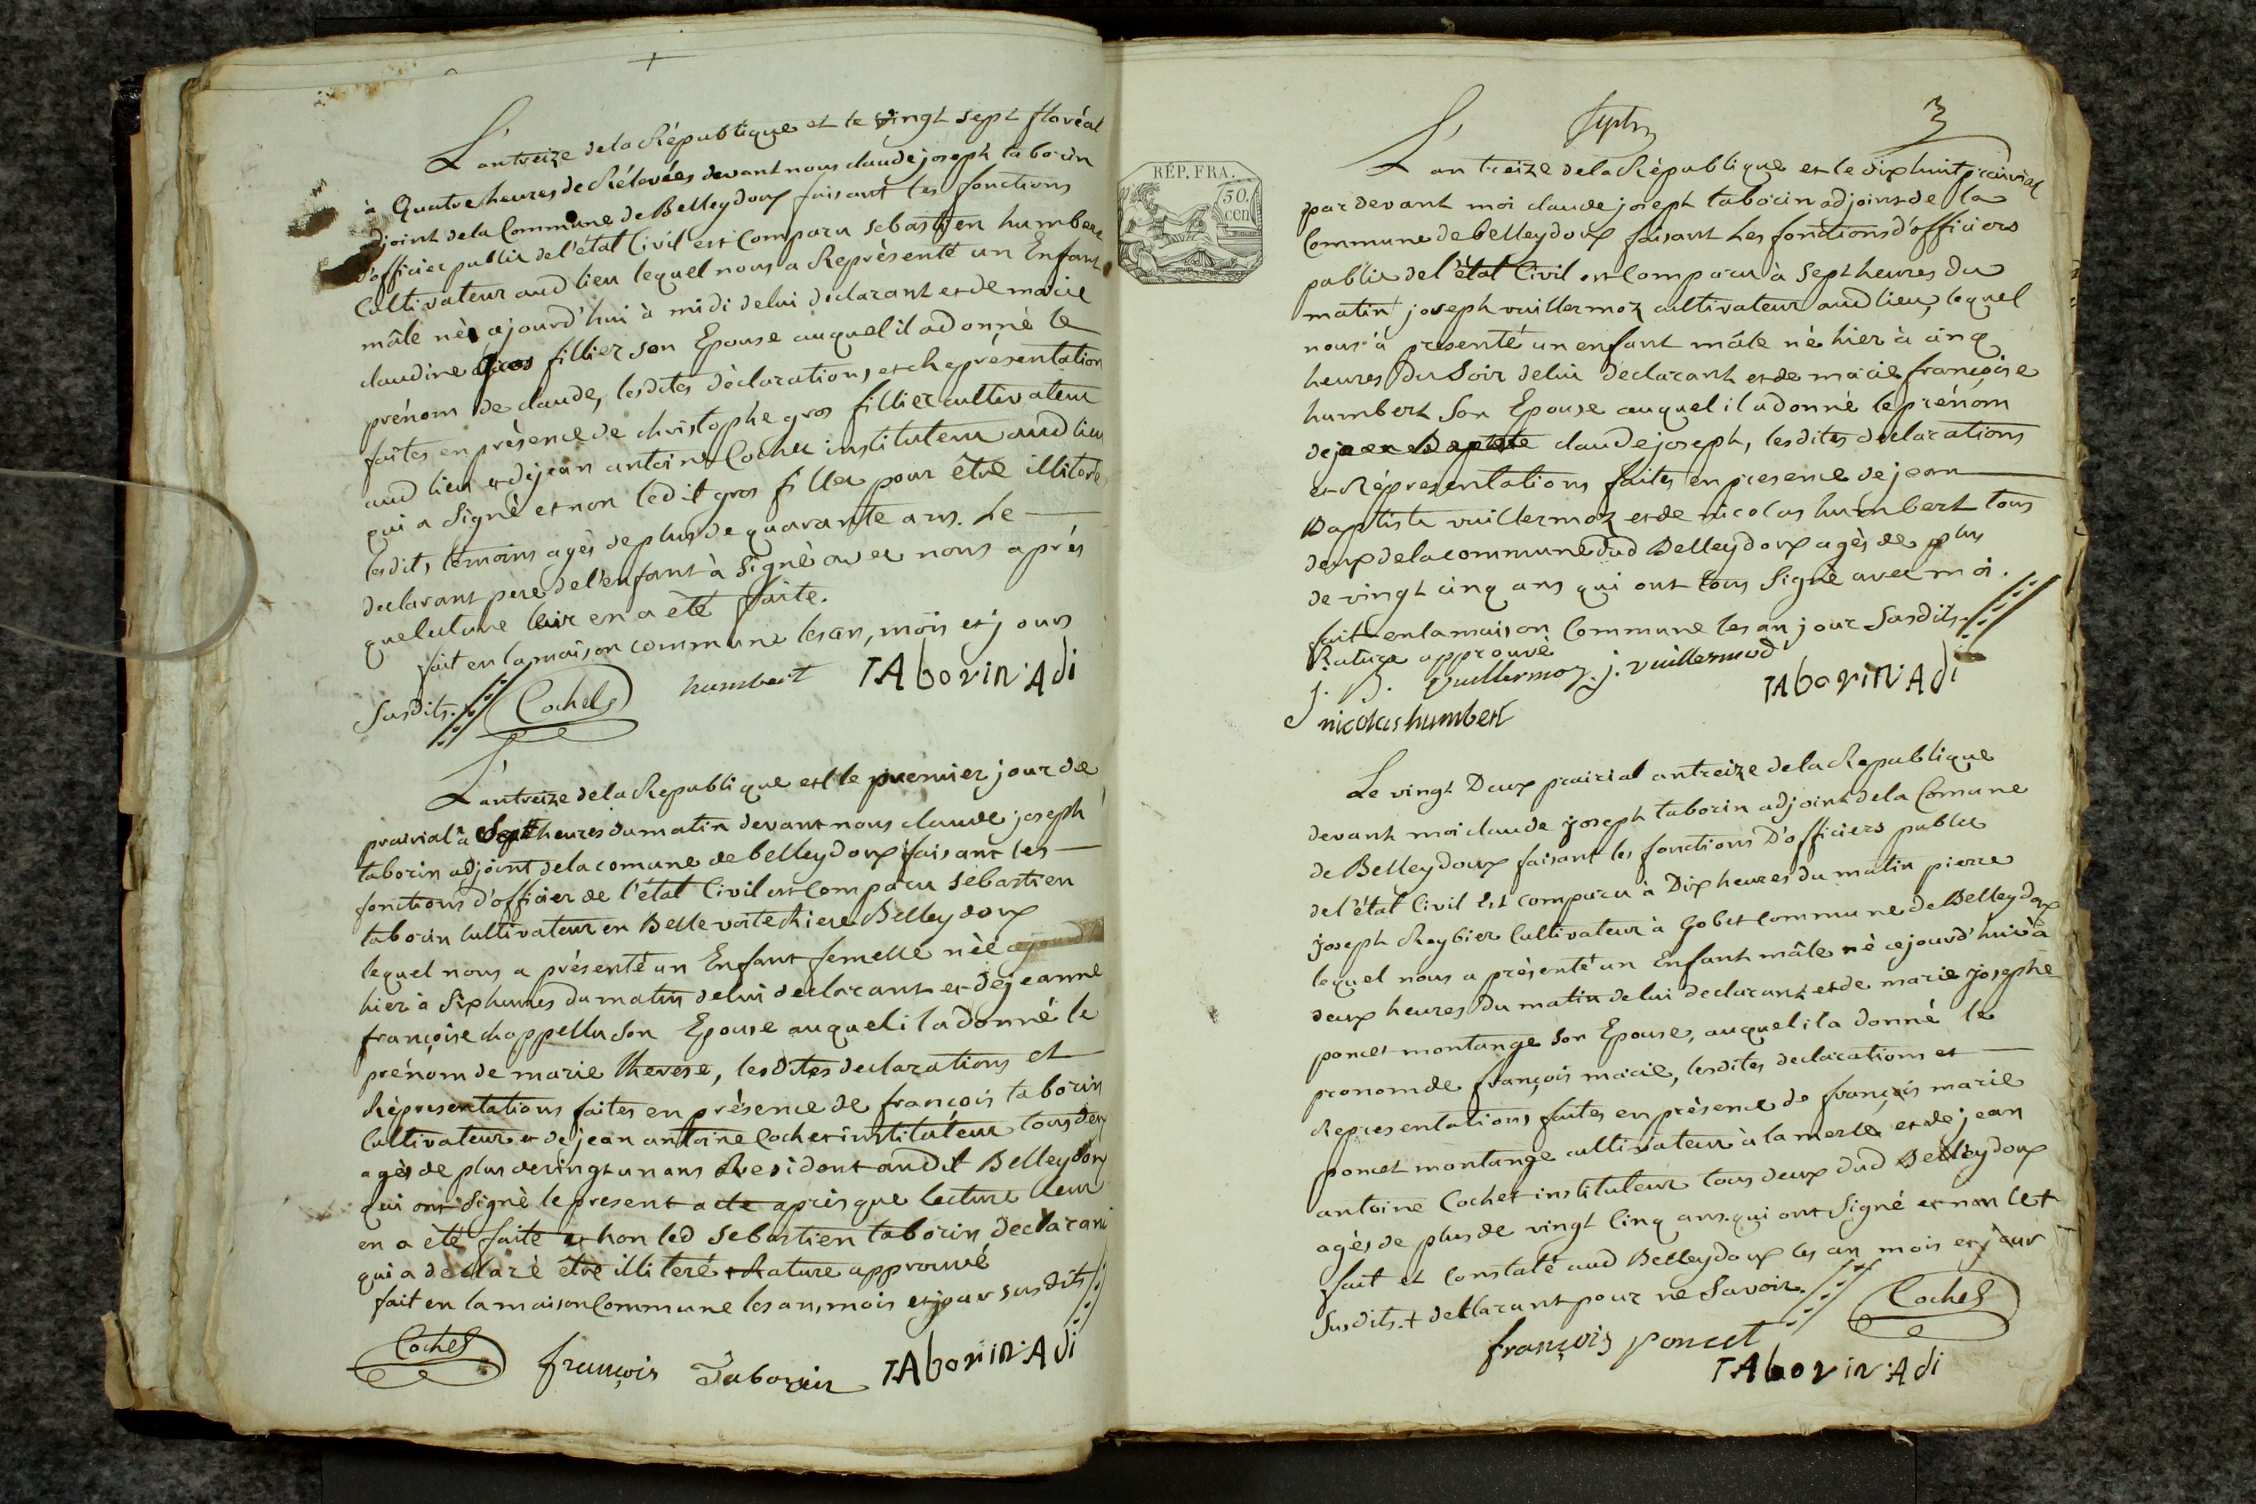 L'an treize de la République et le vingt sept floréal
à Quatre heures de Rélevées devant nous claude joseph taborin
djoint de la Commune de Belleydoux faisant les fonctions
d'officier public de l'état Civil est comparu sebastien humbert
Cultivateur aud lieu lequel nous a Représenté un Enfant
mâle né cejourd'hui à midi de lui déclarant et de marie
claudine gros fillier son Epouse auquel il a donné le
prénom de claude, lesdites déclarations et Représentation
faites en présence de christophe gros fillier cultivateur
aud lieu et de jean antoine Cochet instituteur aud lieu
qui a Signé et non ledit gros fillier pour être illiteré
lesdits témoins agés de plus de quarante ans. Le
declarant pere de l'enfant à Signé avec nous aprés
que lecture leur en a été faite.
fait en la maison commune les an, mois et jours
susdits. Cochet humbert TAborin Adi
L'an treize de la Republique et le premier jour de
prairial à Sept heures du matin devant nous claude joseph
taborin adjoint de la comune de belleydoux faisant les
fonctions d'officier de l'état Civil est comparu sebastien
taborin Cultivateur en Bellevoite Riere Belleydoux
lequel nous a présenté un Enfant femelle née cejourd'h
hier à six heures du matin de lui declarant et de jeanne
françoise chappellu son Epouse auquel il a donné le
prénom de marie therese, lesdites declarations et
Répresentations faites en présence de françois taborin
Cultivateur et de jean antoine Cochet instituteur tous deux
agés de plus de vingt un ans Residant audit Belleydoux
qui ont Signé le present acte après que lecture leur
en a été faite et non led Sebastien taborin declarant
qui a declaré être illiteré Rature approuvé
fait en la maison Commune les an, mois et jour susdits
Cochet françois Taborin TAborin Adi
RÉP. FRA.
50.
cen
3
L'an treize de la République et le dix huit prairial
par devant moi claude joseph taborin adjoint de la
Commune de belleydoux faisant les fonctions d'officiers
public de l'état Civil est comparu à sept heures du
matin joseph vuillermoz cultivateur aud lieu, lequel
nous à presenté un enfant mâle né hier à cinq
heures du Soir de lui declarant et de marie françoise
humbert Son Epouse auquel il a donné le prénom
de jean Baptiste claude joseph, lesdites declarations
et Répresentations faites en presence de jean
Baptiste vuillermoz et de nicolas humbert tous
deux de la commune dud Belleydoux agés de plus
de vingt cinq ans qui ont tous Signé avec moi.
fait en la maison Commune les an jour Susdits.
Rature approuvé
J. B. Vuillermoz. j. vuillermod
TAborin Adi
nicolas humbert
Le vingt Deux prairial an treize de la Republique
devant moi claude joseph taborin adjoint de la Comune
de Belleydoux faisant les fonctions D'officiers public
de l'état Civil Est comparu à Dix heures du matin pierre
joseph Reybier Cultivateur à Gobet commune de Belleydoux
lequel nous a présenté un Enfant mâle né cejourd'hui à
deux heures du matin de lui declarant et de marie josephe
poncet montange son Epouse, auquel il a donné le
pronom de françois marie, lesdites declarations et
Representations faites en présence de françois marie
poncet montange cultivateur à la merle et de jean
antoine Cochet instituteur tous deux dud Belleydoux
agés de plus de vingt Cinq ans qui ont Signé et non le +
fait et constaté aud Belleydoux les an mois et jour
Susdits. + declarant pour ne Savoir. Cochet
françois poncet
TAborin Adi